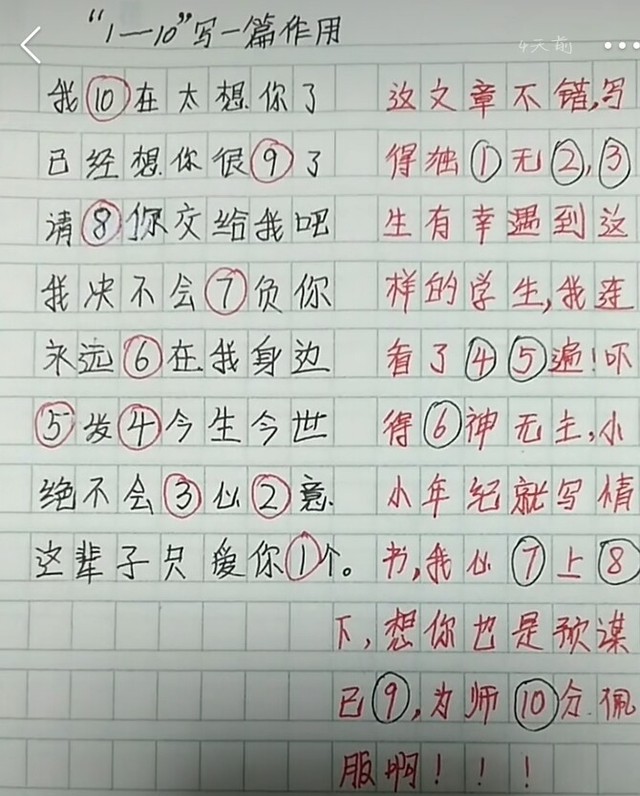 “1—10”写一篇作用
4天前
我⑩在太想你了
已经想你很⑨了
请⑧你交给我吧
我决不会⑦负你
永远⑥在我身边
⑤发④今生今世
绝不会③心②意.
这辈子只爱你①个。
这文章不错,写
得独①无②,③
生有幸遇到这
样的学生,我连
看了④⑤遍!吓
得⑥神无主,小
小年纪就写情
书,我心⑦上⑧
下,想你也是预谋
已⑨,为师⑩分佩
服啊!!!